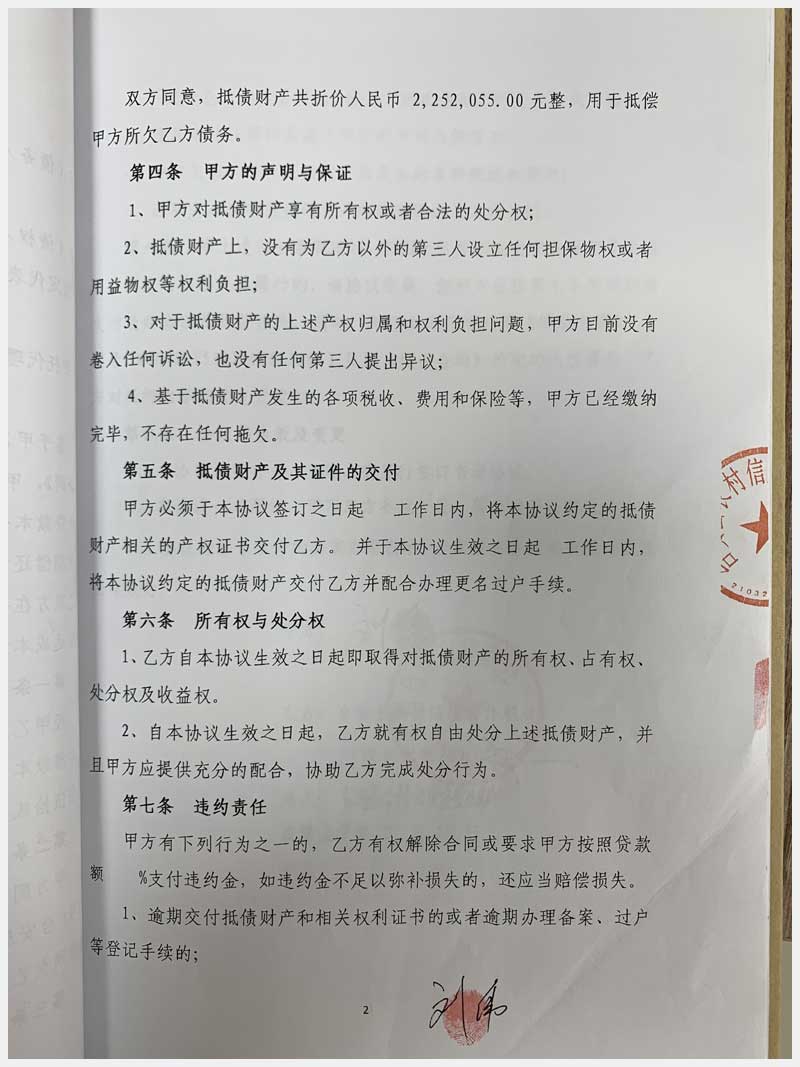 双方同意，抵债财产共折价人民币 2,252,055.00 元整，用于抵偿
甲方所欠乙方债务。
第四条 甲方的声明与保证
1、甲方对抵债财产享有所有权或者合法的处分权；
2、抵债财产上，没有为乙方以外的第三人设立任何担保物权或者
用益物权等权利负担；
3、对于抵债财产的上述产权归属和权利负担问题，甲方目前没有
卷入任何诉讼，也没有任何第三人提出异议；
4、基于抵债财产发生的各项税收、费用和保险等，甲方已经缴纳
完毕，不存在任何拖欠。
第五条 抵债财产及其证件的交付
甲方必须于本协议签订之日起 工作日内，将本协议约定的抵债
财产相关的产权证书交付乙方。 并于本协议生效之日起 工作日内，
将本协议约定的抵债财产交付乙方并配合办理更名过户手续。
第六条 所有权与处分权
1、乙方自本协议生效之日起即取得对抵债财产的所有权、占有权、
处分权及收益权。
2、自本协议生效之日起，乙方就有权自由处分上述抵债财产，并
且甲方应提供充分的配合，协助乙方完成处分行为。
第七条 违约责任
甲方有下列行为之一的，乙方有权解除合同或要求甲方按照贷款
额 %支付违约金，如违约金不足以弥补损失的，还应当赔偿损失。
1、逾期交付抵债财产和相关权利证书的或者逾期办理备案、过户
等登记手续的；
村信
21032
2
刘伟